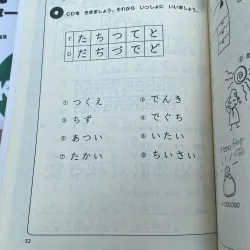 CDを ききましょう。それから いっしょに いいましょう。
T たちつてと
D だぢづでど
① つくえ ② でんき
③ ちず ④ でぐち
⑤ あつい ⑥ いたい
⑦ たかい ⑧ ちいさい
32